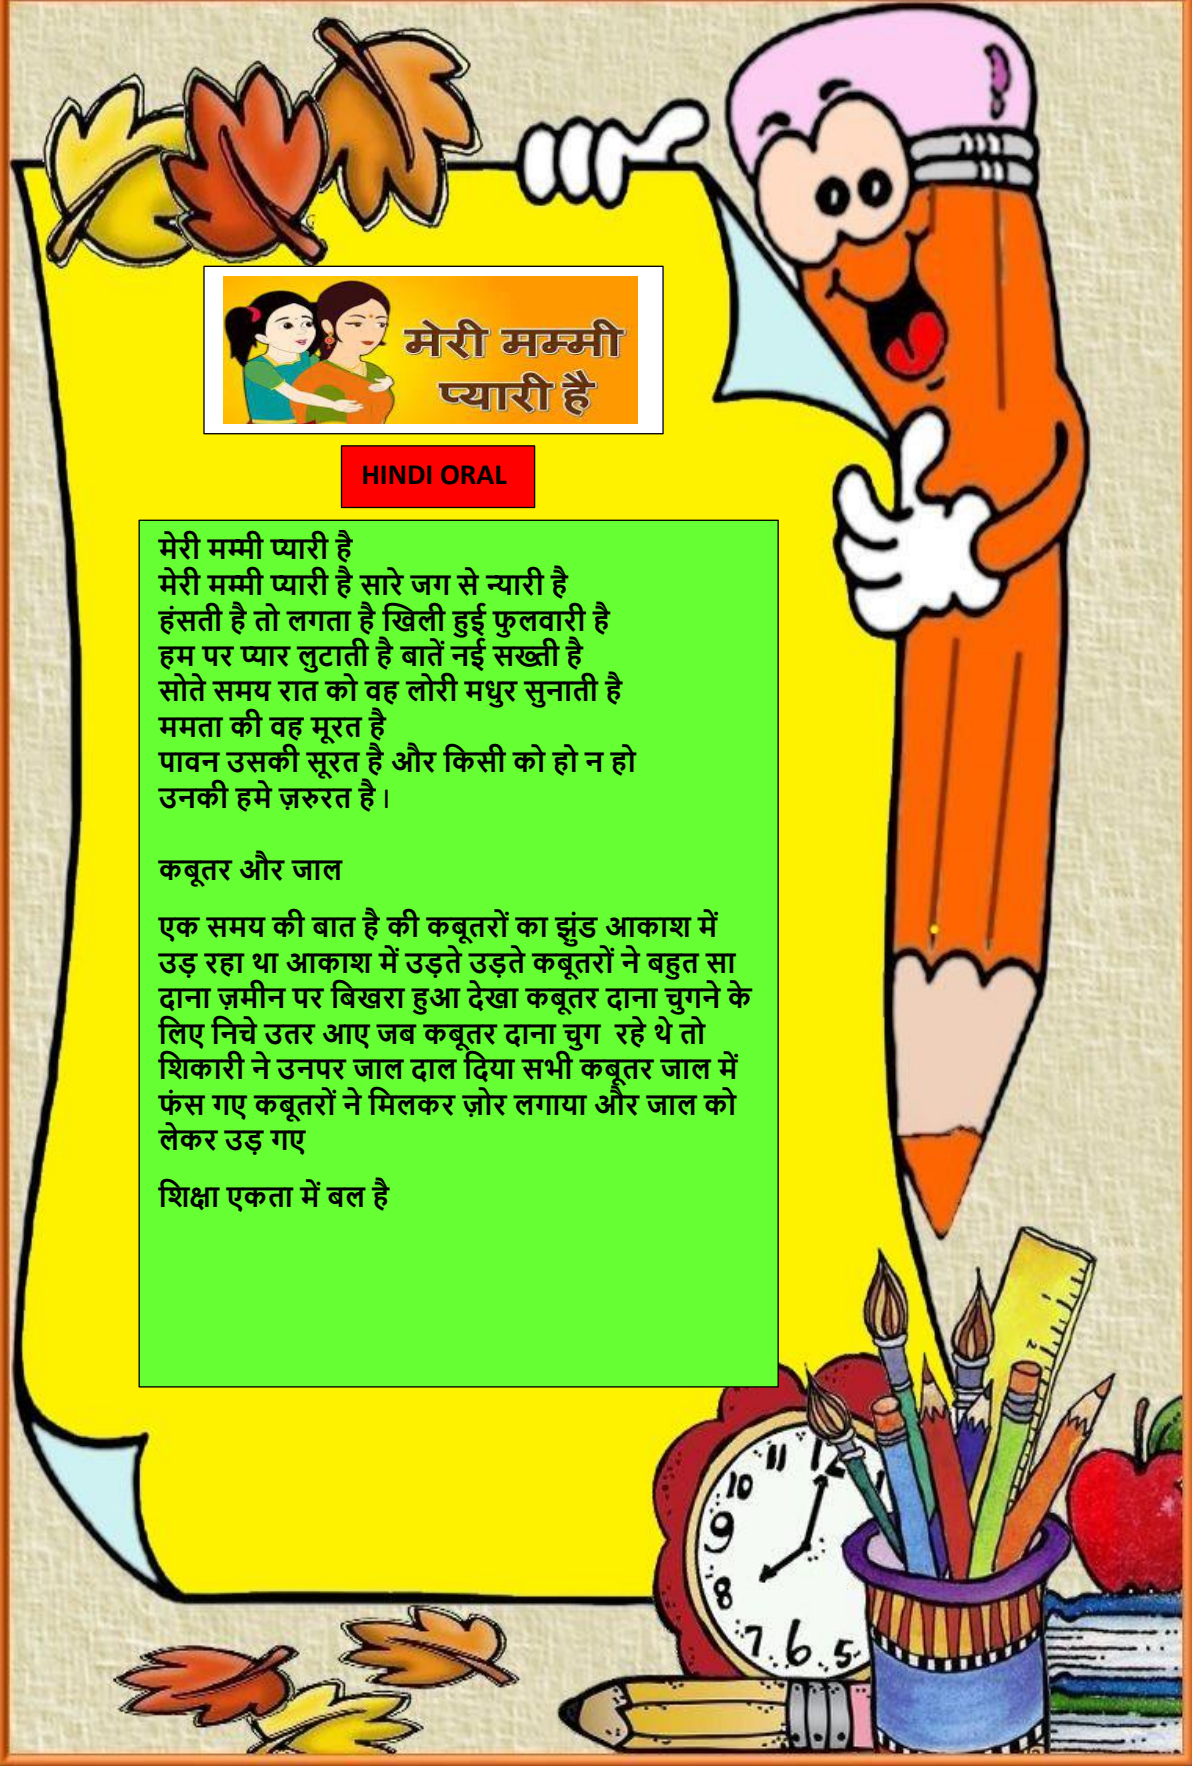 मेरी मम्मी
प्यारी है
HINDI ORAL
मेरी मम्मी प्यारी है
मेरी मम्मी प्यारी है सारे जग से न्यारी है
हंसती है तो लगता है खिली हुई फुलवारी है
हम पर प्यार लुटाती है बातें नई सख्ती है
सोते समय रात को वह लोरी मधुर सुनाती है
ममता की वह मूरत है
पावन उसकी सूरत है और किसी को हो न हो
उनकी हमे ज़रुरत है।
कबूतर और जाल
एक समय की बात है की कबूतरों का झुंड आकाश में
उड़ रहा था आकाश में उड़ते उड़ते कबूतरों ने बहुत सा
दाना ज़मीन पर बिखरा हुआ देखा कबूतर दाना चुगने के
लिए निचे उतर आए जब कबूतर दाना चुग रहे थे तो
शिकारी ने उनपर जाल दाल दिया सभी कबूतर जाल में
फंस गए कबूतरों ने मिलकर ज़ोर लगाया और जाल को
लेकर उड़ गए
शिक्षा एकता में बल है
10 11 12 1
9
8
7 6 5
2